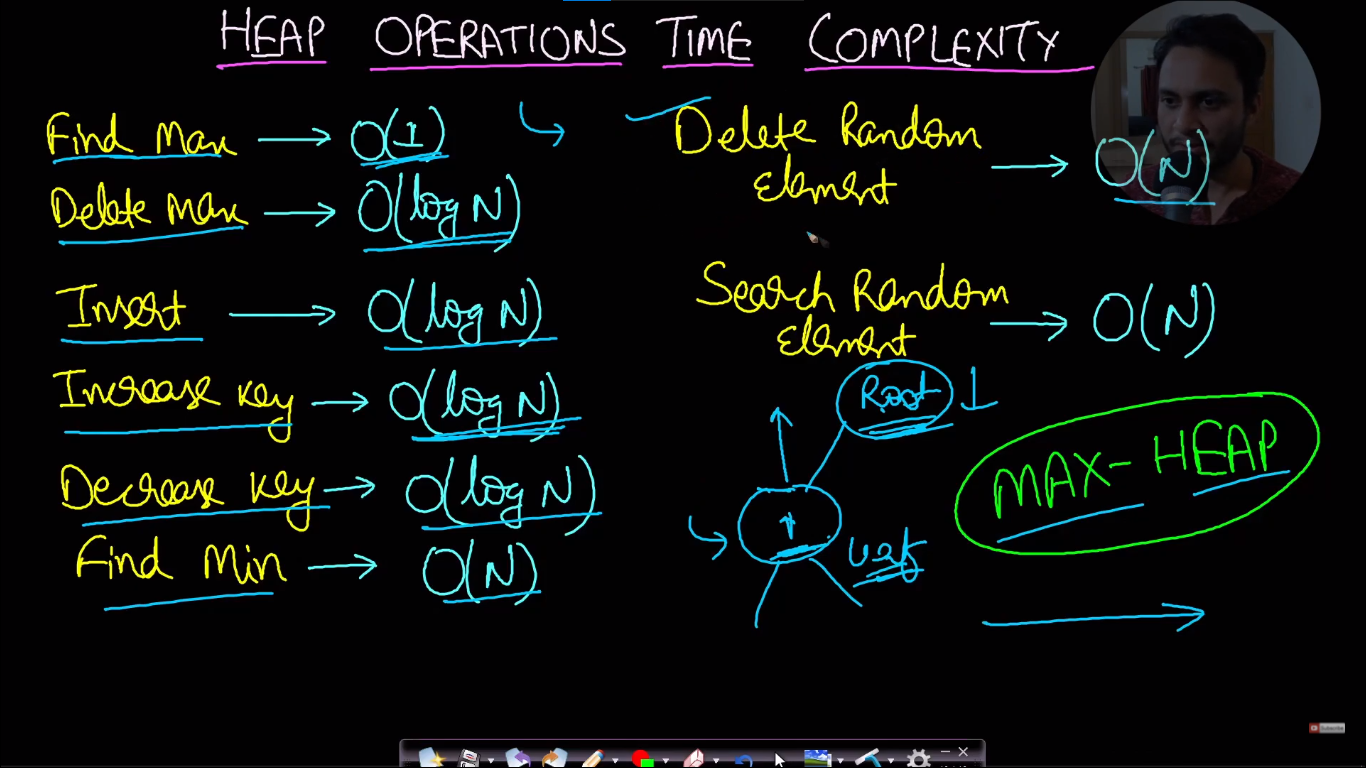 HEAP OPERATIONS TIME COMPLEXITY
Find Max → O(1)
Delete Max → O(log N)
Insert → O(log N)
Increase Key → O(log N)
Decrease Key → O(log N)
Find Min → O(N)
Delete Random
Element → O(N)
Search Random
Element → O(N)
Root
MAX-HEAP
Subscribe